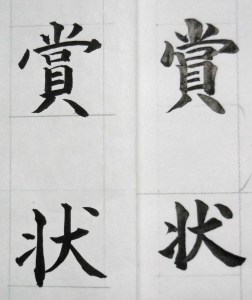 賞状
賞状